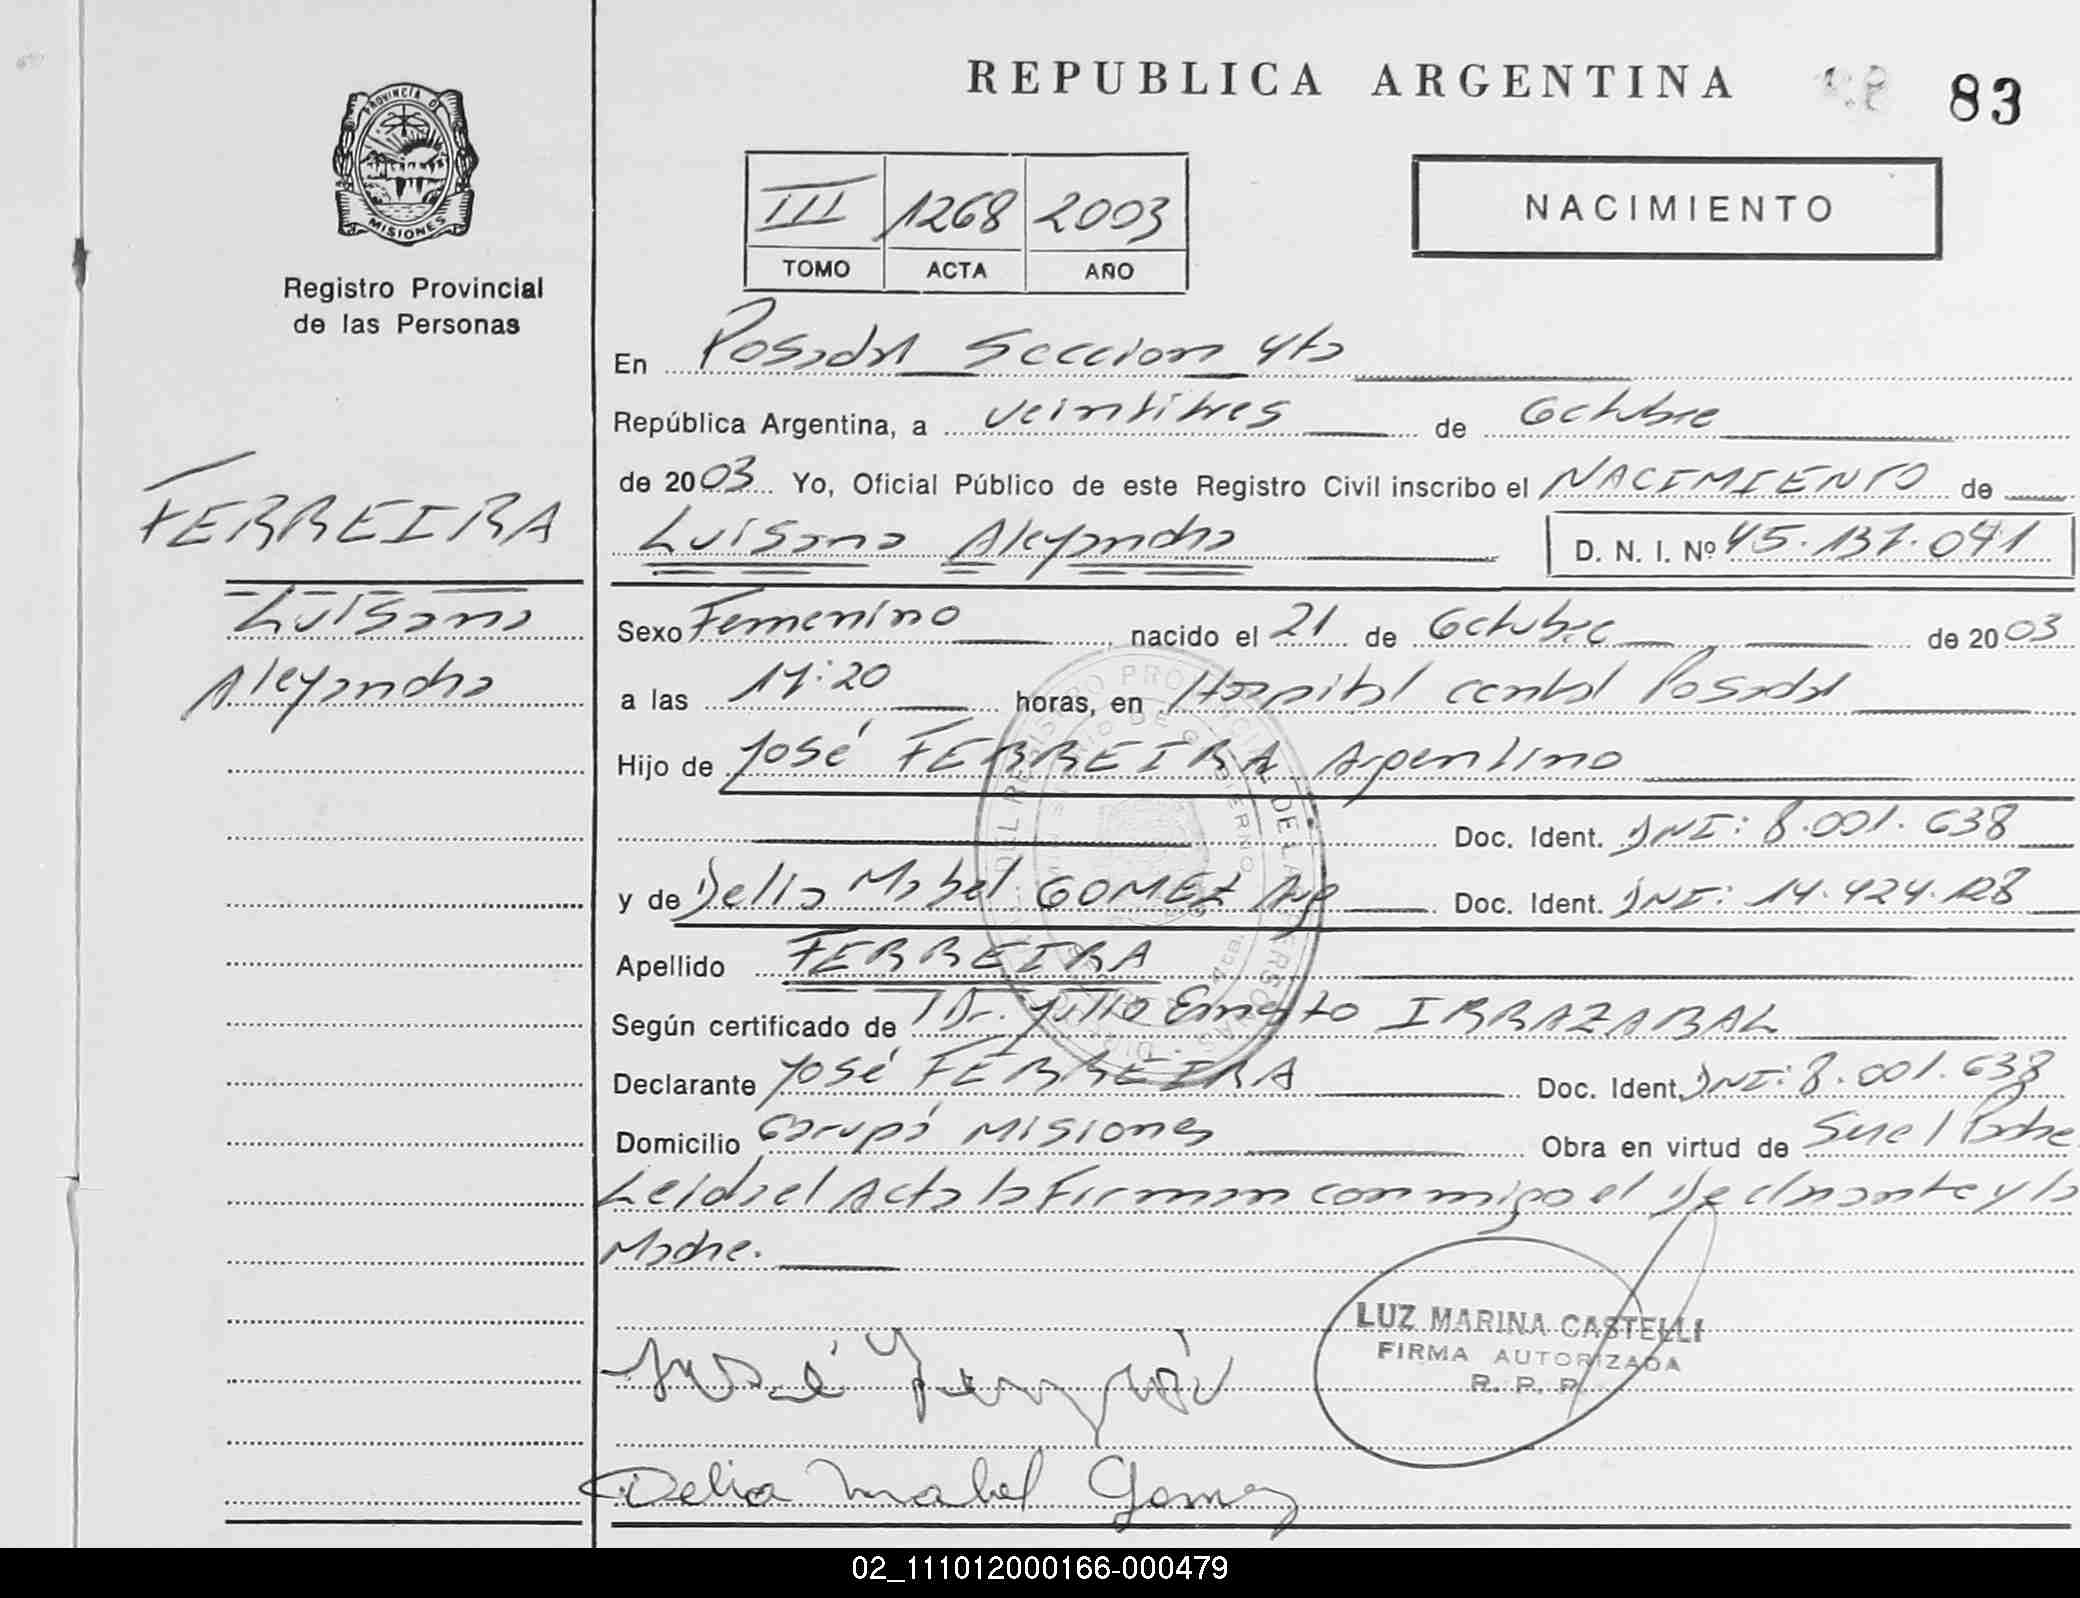 REPUBLICA ARGENTINA
83
PROVINCIA DE MISIONES
Registro Provincial
de las Personas
III 1268 2003
TOMO ACTA AÑO
NACIMIENTO
En Posadas Seccion 4ta
República Argentina, a veintitres de Octubre
de 2003 Yo, Oficial Público de este Registro Civil inscribo el NACIMIENTO de
Luisana Alejandra D. N. I. Nº 45.137.041
FERREIRA
Luisana
Alejandra
Sexo Femenino nacido el 21 de Octubre de 2003
a las horas, en Hospital central Posadas
Hijo de José FERREIRA Argentino
Doc. Ident. DNI: 8.001.638
y de Delia Mabel GOMEZ Arg Doc. Ident. DNI: 14.424.128
Apellido FERREIRA
Según certificado de Dr. Julio Ernesto IRRAZABAL
Declarante José FERREIRA Doc. Ident. DNI: 8.001.638
Domicilio Garupá Misiones Obra en virtud de Ser el Padre
Leida el Acta la Firman conmigo el Declarante y la
Madre.
LUZ MARINA CASTELLI
FIRMA AUTORIZADA
R. P. P.
José Ferreira
Delia Mabel Gomez
02_111012000166-000479